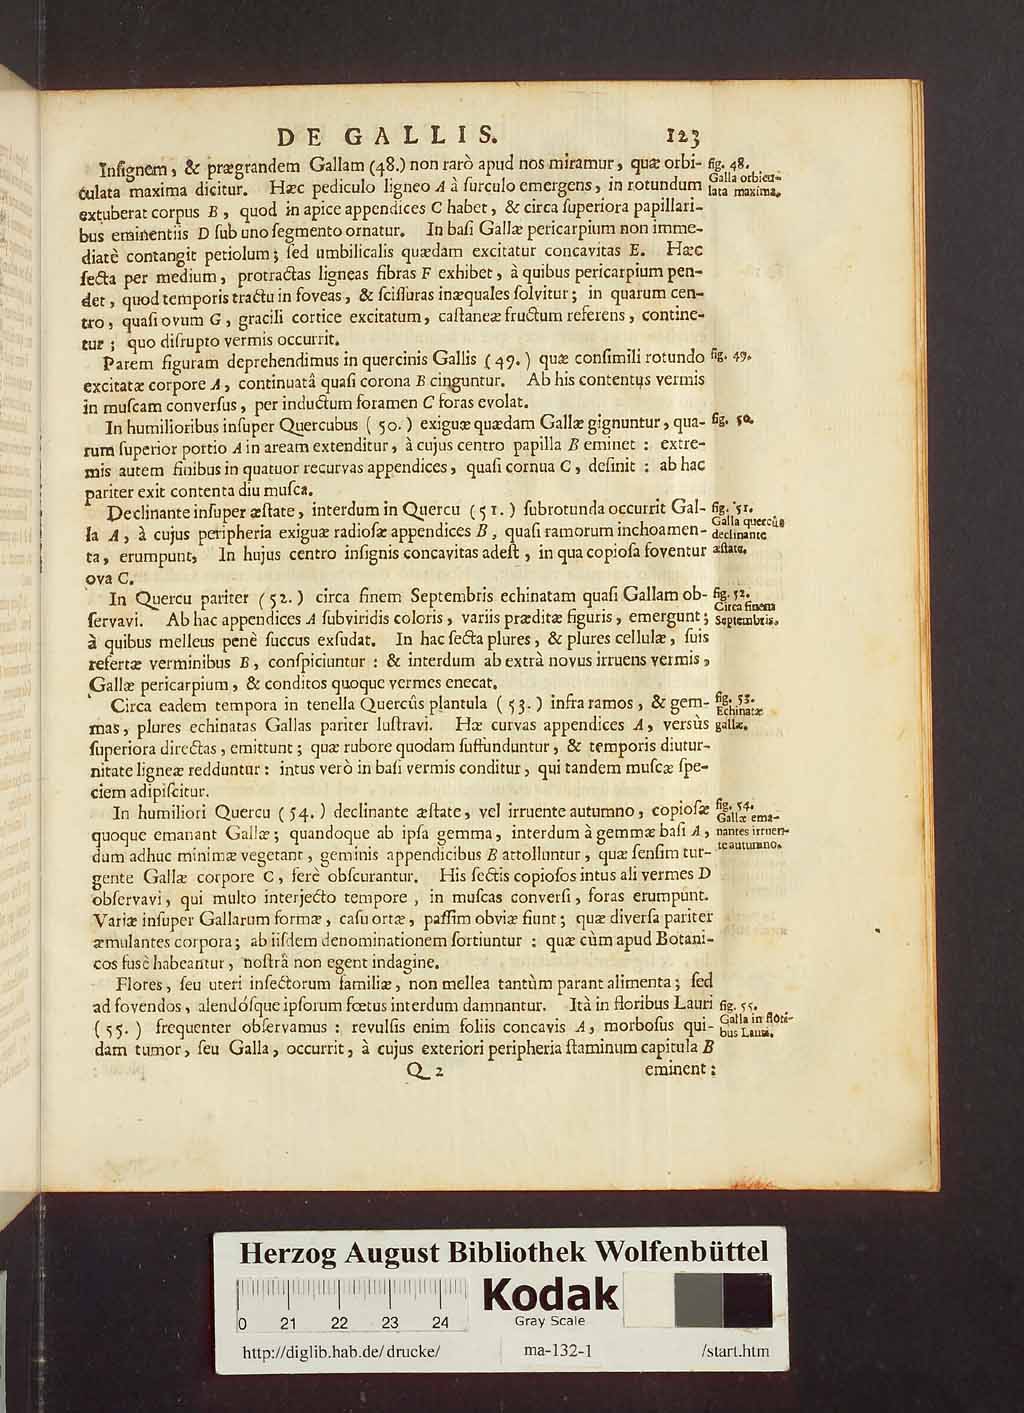 DE GALLIS. 123
Inſignem, & prægrandem Gallam (48.) non rarò apud nos miramur, quæ orbi- fig. 48.
culata maxima dicitur. Hæc pediculo ligneo A à ſurculo emergens, in rotundum Galla orbicu-
extuberat corpus B, quod in apice appendices C habet, & circa ſuperiora papillari- lata maxima.
bus eminentiis D ſub uno ſegmento ornatur. In baſi Gallæ pericarpium non imme-
diatè contangit petiolum; ſed umbilicalis quædam excitatur concavitas E. Hæc
ſecta per medium, protractas ligneas fibras F exhibet, à quibus pericarpium pen-
det, quod temporis tractu in foveas, & ſciſſuras inæquales ſolvitur; in quarum cen-
tro, quaſi ovum G, gracili cortice excitatum, caſtaneæ fructum referens, contine-
tur; quo diſrupto vermis occurrit.
Parem figuram deprehendimus in quercinis Gallis (49.) quæ conſimili rotundo fig. 49.
excitatæ corpore A, continuatâ quaſi corona B cinguntur. Ab his contentus vermis
in muſcam converſus, per inductum foramen C foras evolat.
In humilioribus inſuper Quercubus (50.) exiguæ quædam Gallæ gignuntur, qua- fig. 50.
rum ſuperior portio A in aream extenditur, à cujus centro papilla B eminet: extre-
mis autem finibus in quatuor recurvas appendices, quaſi cornua C, definit: ab hac
pariter exit contenta diu muſca.
Declinante inſuper æſtate, interdum in Quercu (51.) ſubrotunda occurrit Gal- fig. 51.
la A, à cujus peripheria exiguæ radioſæ appendices B, quaſi ramorum inchoamen- Galla quercûs declinante
ta, erumpunt, In hujus centro inſignis concavitas adeſt, in qua copioſa foventur æſtate.
ova C.
In Quercu pariter (52.) circa finem Septembris echinatam quaſi Gallam ob- fig. 52.
ſervavi. Ab hac appendices A ſubviridis coloris, variis præditæ figuris, emergunt; Circa finem Septembris.
à quibus melleus penè ſuccus exſudat. In hac ſecta plures, & plures cellulæ, ſuis
refertæ verminibus B, conſpiciuntur: & interdum ab extrà novus irruens vermis,
Gallæ pericarpium, & conditos quoque vermes enecat.
Circa eadem tempora in tenella Quercûs plantula (53.) infra ramos, & gem- fig. 53.
mas, plures echinatas Gallas pariter luſtravi. Hæ curvas appendices A, versùs Echinatæ gallæ.
ſuperiora directas, emittunt; quæ rubore quodam ſuffunduntur, & temporis diutur-
nitate ligneæ redduntur: intus verò in baſi vermis conditur, qui tandem muſcæ ſpe-
ciem adipiſcitur.
In humiliori Quercu (54.) declinante æſtate, vel irruente autumno, copioſæ fig. 54.
quoque emanant Gallæ; quandoque ab ipſa gemma, interdum à gemmæ baſi A, Gallæ ema- nantes irruen-
dum adhuc minimæ vegetant, geminis appendicibus B attolluntur, quæ ſenſim tur- te autumno.
gente Gallæ corpore C, ferè obſcurantur. His ſectis copioſos intus ali vermes D
obſervavi, qui multo interjecto tempore, in muſcas converſi, foras erumpunt.
Variæ inſuper Gallarum formæ, caſu ortæ, paſſim obviæ fiunt; quæ diverſa pariter
æmulantes corpora; ab iiſdem denominationem ſortiuntur: quæ cùm apud Botani-
cos fusè habeantur, noſtrâ non egent indagine.
Flores, ſeu uteri inſectorum familiæ, non mellea tantùm parant alimenta; ſed
ad fovendos, alendóſque ipſorum fœtus interdum damnantur. Ità in floribus Lauri fig. 55.
(55.) frequenter obſervamus: revulſis enim foliis concavis A, morboſus qui- Galla in flori- bus Lauri.
dam tumor, ſeu Galla, occurrit, à cujus exteriori peripheria ſtaminum capitula B
Q 2 eminent:
Herzog August Bibliothek Wolfenbüttel
Kodak
Gray Scale
0 21 22 23 24
http://diglib.hab.de/drucke/ ma-132-1 /start.htm